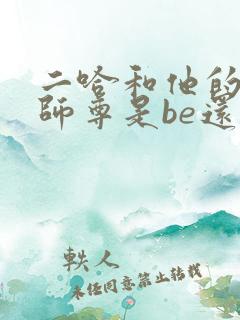 二哈和他的
師尊是be還
軼人
未经同意禁止转载